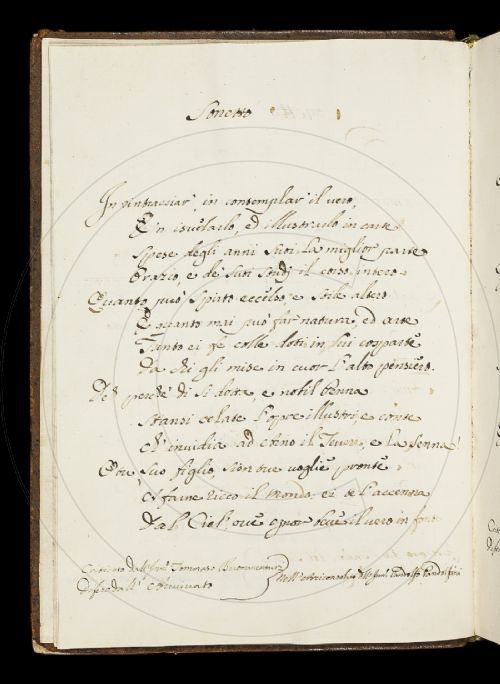 Sonetto
In rintracciar, in contemplar il vero,
E 'n isvelarlo, ed illustrarlo in carte
Spese degli anni suoi la miglior parte
Orazio, e de' suoi studj il corso intero.
Quanto può Spirto eccelso, e stile altero
E quanto mai può far natura, ed arte
Tanto ei fe colle doti in lui comparte
Da chi gli mise in cuor l'alto pensiero.
Deh perchè di sì dotta, e nobil Penna
Stansi celate l'opre illustri, e conte
Ch' invidia ad esino il Tevere, e la Senna!
E tu, suo figlio, sien tue voglie pronte
A farne ricco il Mondo, ei te l'accenna
Dal Ciel, ove è il vero in fonte
Tommaso Buonaventuri
difeso dall'
Nell' Pandolfo Pandolfini